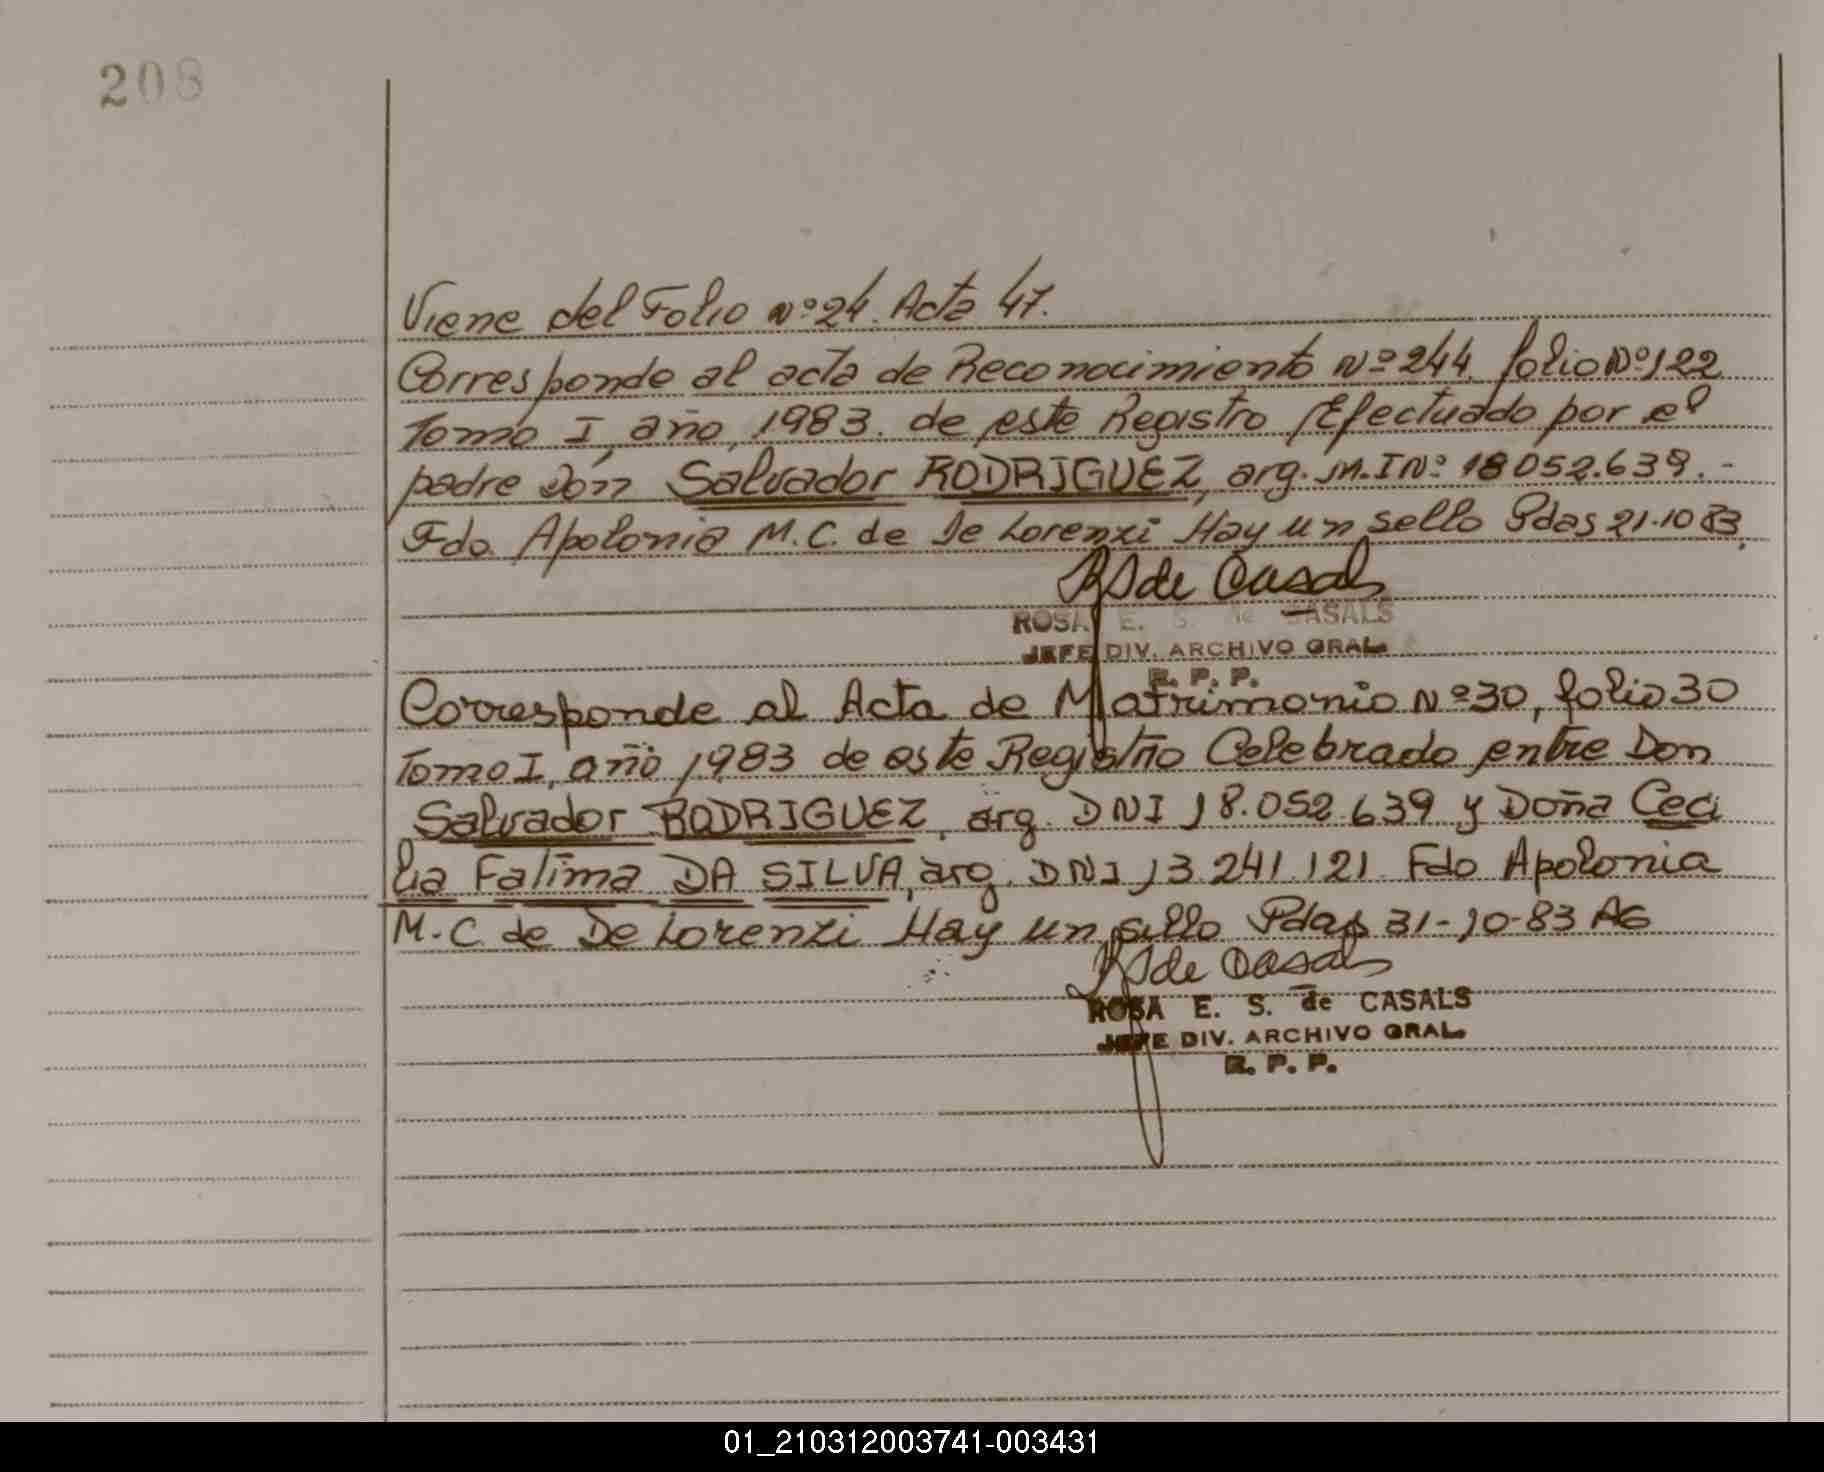 208
Viene del Folio Nº 24. Acta 47.
Corresponde al acta de Reconocimiento Nº 244. folio Nº 122
Tomo I, año, 1983. de este Registro Efectuado por el
padre Dón Salvador RODRIGUEZ, arg. M.I Nº 18052.639.-
Fdo. Apolonia M.C. de De Lorenzi Hay un sello Pdas 21.10 83.
RSde Casals
ROSA E. S. de CASALS
JEFE DIV. ARCHIVO GRAL.
R. P. P.
Corresponde al Acta de Matrimonio Nº 30, folio 30
Tomo I, año 1983 de este Registro Celebrado entre Don
Salvador RODRIGUEZ, arg. DNI 18.052.639 y Doña Ceci
lia Fatima DA SILVA, arg. DNI 13.241.121. Fdo Apolonia
M.C. de De Lorenzi Hay un sello Pdas 31-10-83 AG
RSde Casals
ROSA E. S. de CASALS
JEFE DIV. ARCHIVO GRAL.
R. P. P.
01_210312003741-003431